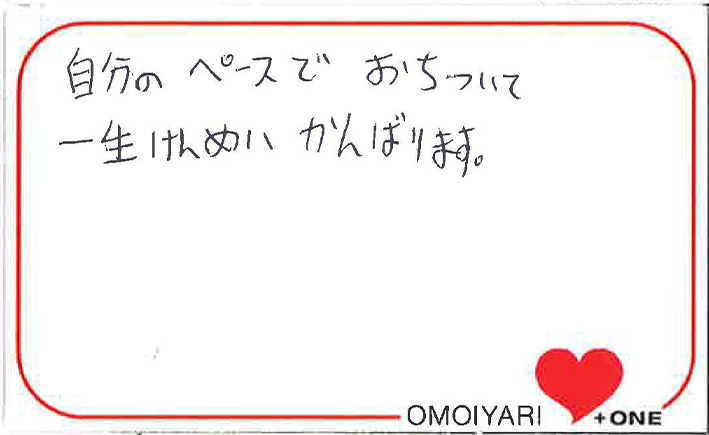 自分の ペースで おちついて
一生けんめい がんばります。
OMOIYARI
+ONE